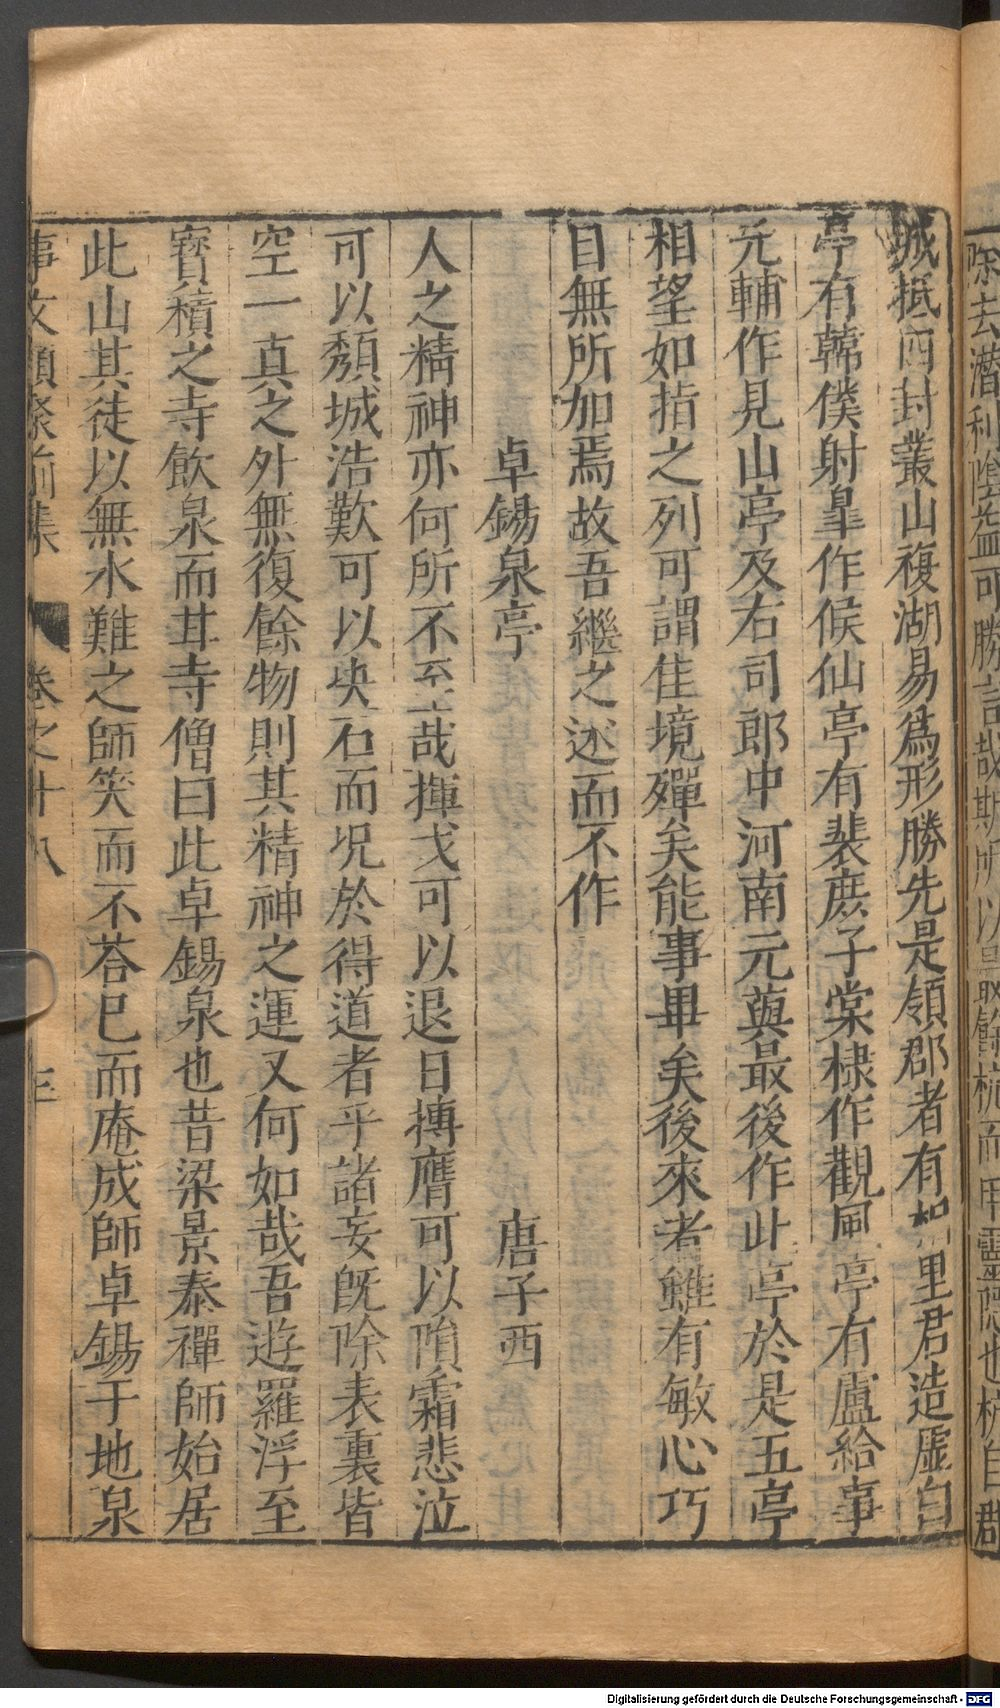 除去潛利陰益可勝言哉斯所以旱爲餘杭而甲靈隱也杭自郡
城抵四封叢山複湖易爲形勝先是領郡者有相里君造虛白
亭有韓僕射皐作候仙亭有裴庶子棠棣作觀風亭有盧給事
元輔作見山亭及右司郎中河南元藇最後作此亭於是五亭
相望如指之列可謂佳境殫矣能事畢矣後來者雖有敏心巧
目無所加焉故吾繼之述而不作
卓錫泉亭 唐子西
人之精神亦何所不至哉揮戈可以退日摶膺可以隕霜悲泣
可以頽城浩歎可以裂石而况於得道者乎諸妄旣除表裏皆
空一真之外無復餘物則其精神之運又何如哉吾遊羅浮至
寳積之寺飲泉而甘寺僧曰此卓錫泉也昔梁景泰禪師始居
此山其徒以無水難之師笑而不荅巳而庵成師卓錫于地泉
事文類聚前集 卷之十八 三
Digitalisierung gefördert durch die Deutsche Forschungsgemeinschaft - DFG